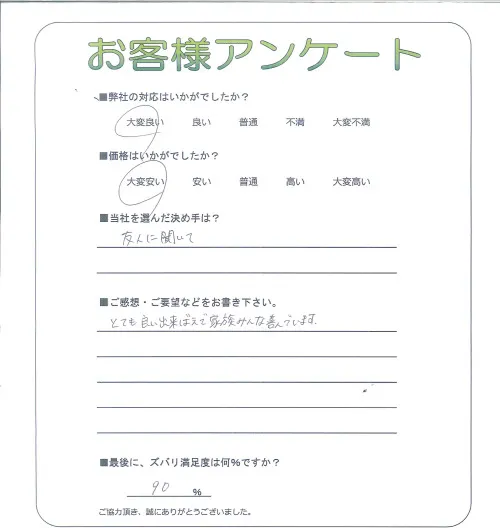 お客様アンケート
■弊社の対応はいかがでしたか？
大変良い 良い 普通 不満 大変不満
■価格はいかがでしたか？
大変安い 安い 普通 高い 大変高い
■当社を選んだ決め手は？
友人に聞いて
■ご感想・ご要望などをお書き下さい。
とても良い出来ばえで家族みんな喜んでいます.
■最後に、ズバリ満足度は何％ですか？
90 %
ご協力頂き、誠にありがとうございました。